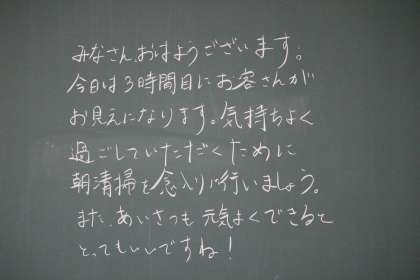 みなさん、おはようございます。
今日は3時間目にお客さんが
お見えになります。気持ちよく
過ごしていただくために
朝清掃を念入りに行いましょう。
また、あいさつも元気よくできると
とってもいいですね!